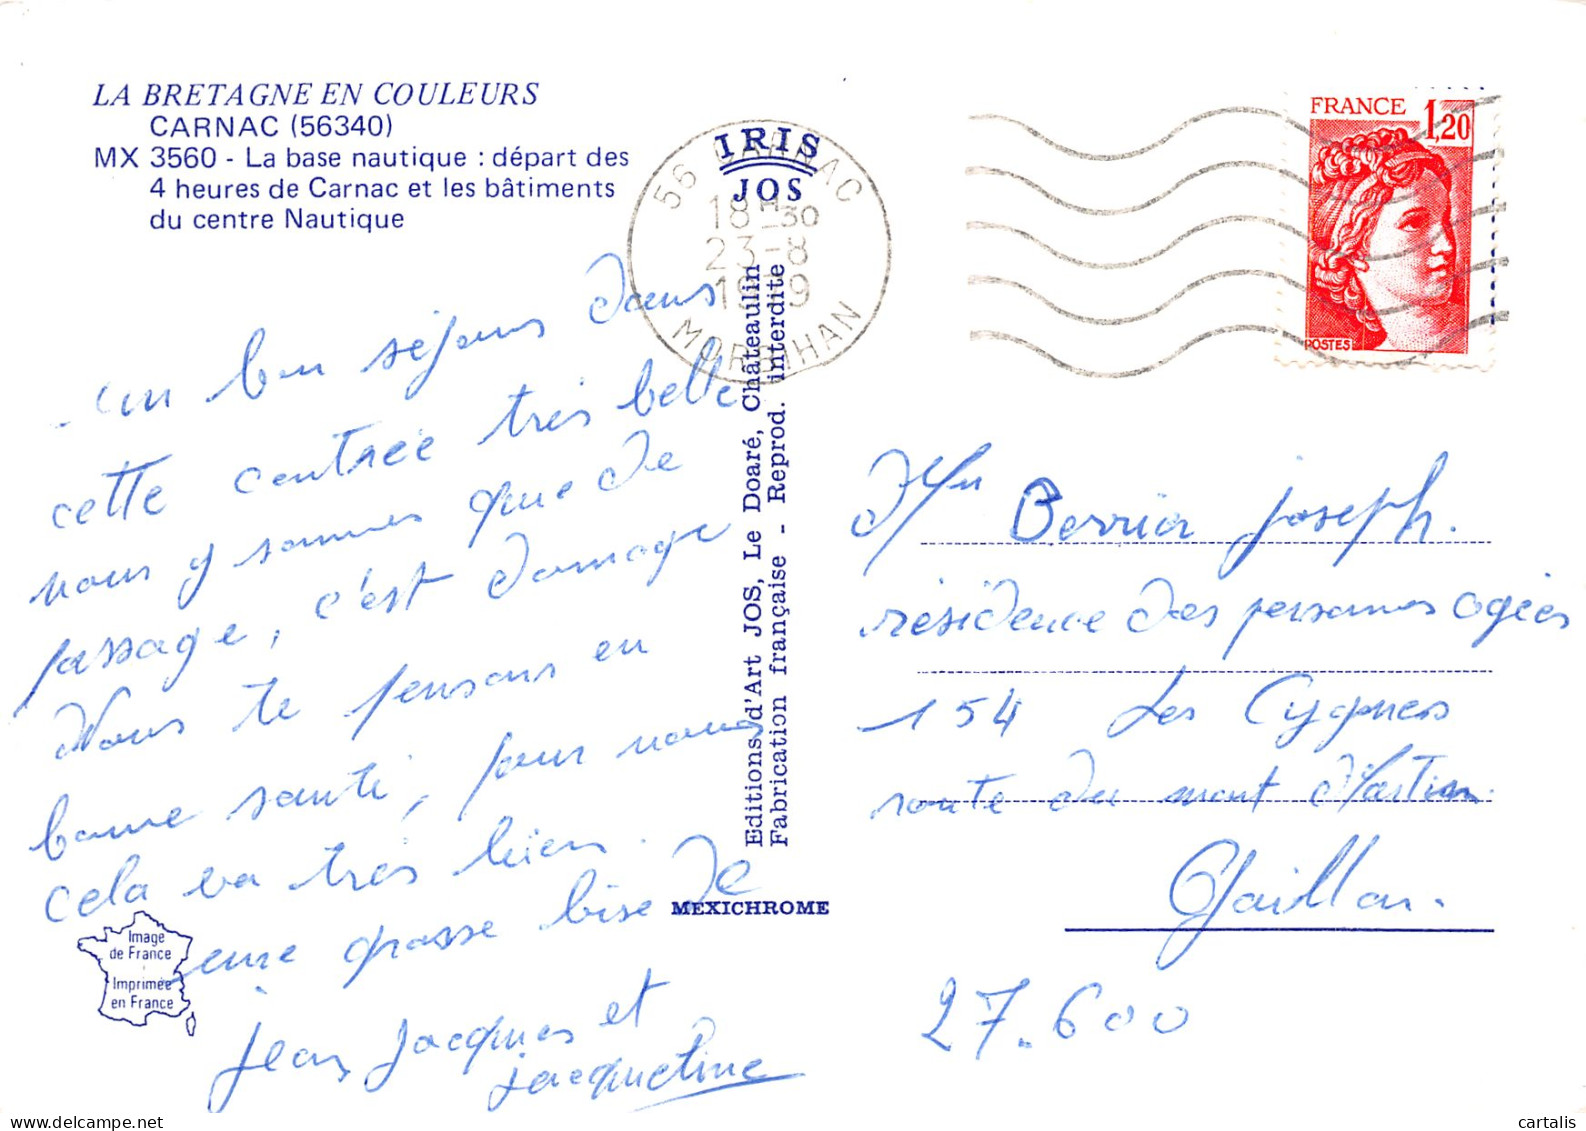 LA BRETAGNE EN COULEURS
CARNAC (56340)
MX 3560 - La base nautique : départ des
4 heures de Carnac et les bâtiments
du centre Nautique
IRIS
JOS
56 CARNAC
18H30
23-8
1979
MORBIHAN
FRANCE 1,20
POSTES
Un bon séjour dans
cette contrée très belle
nous y sommes que de
passage, c'est domage
Nous te pensons en
bonne santé, pour nous
cela va très bien. Je
une grosse bise
Jean Jacques et
Jacqueline
Editions d'Art JOS, Le Doaré, Châteaulin
Fabrication française - Reprod. interdite
MEXICHROME
Image
de France
Imprimée
en France
Mr Berrier Joseph.
résidence des personnes agées
154 Les Cygnes
route du mont Martin
Gaillon.
27.600
cartalis